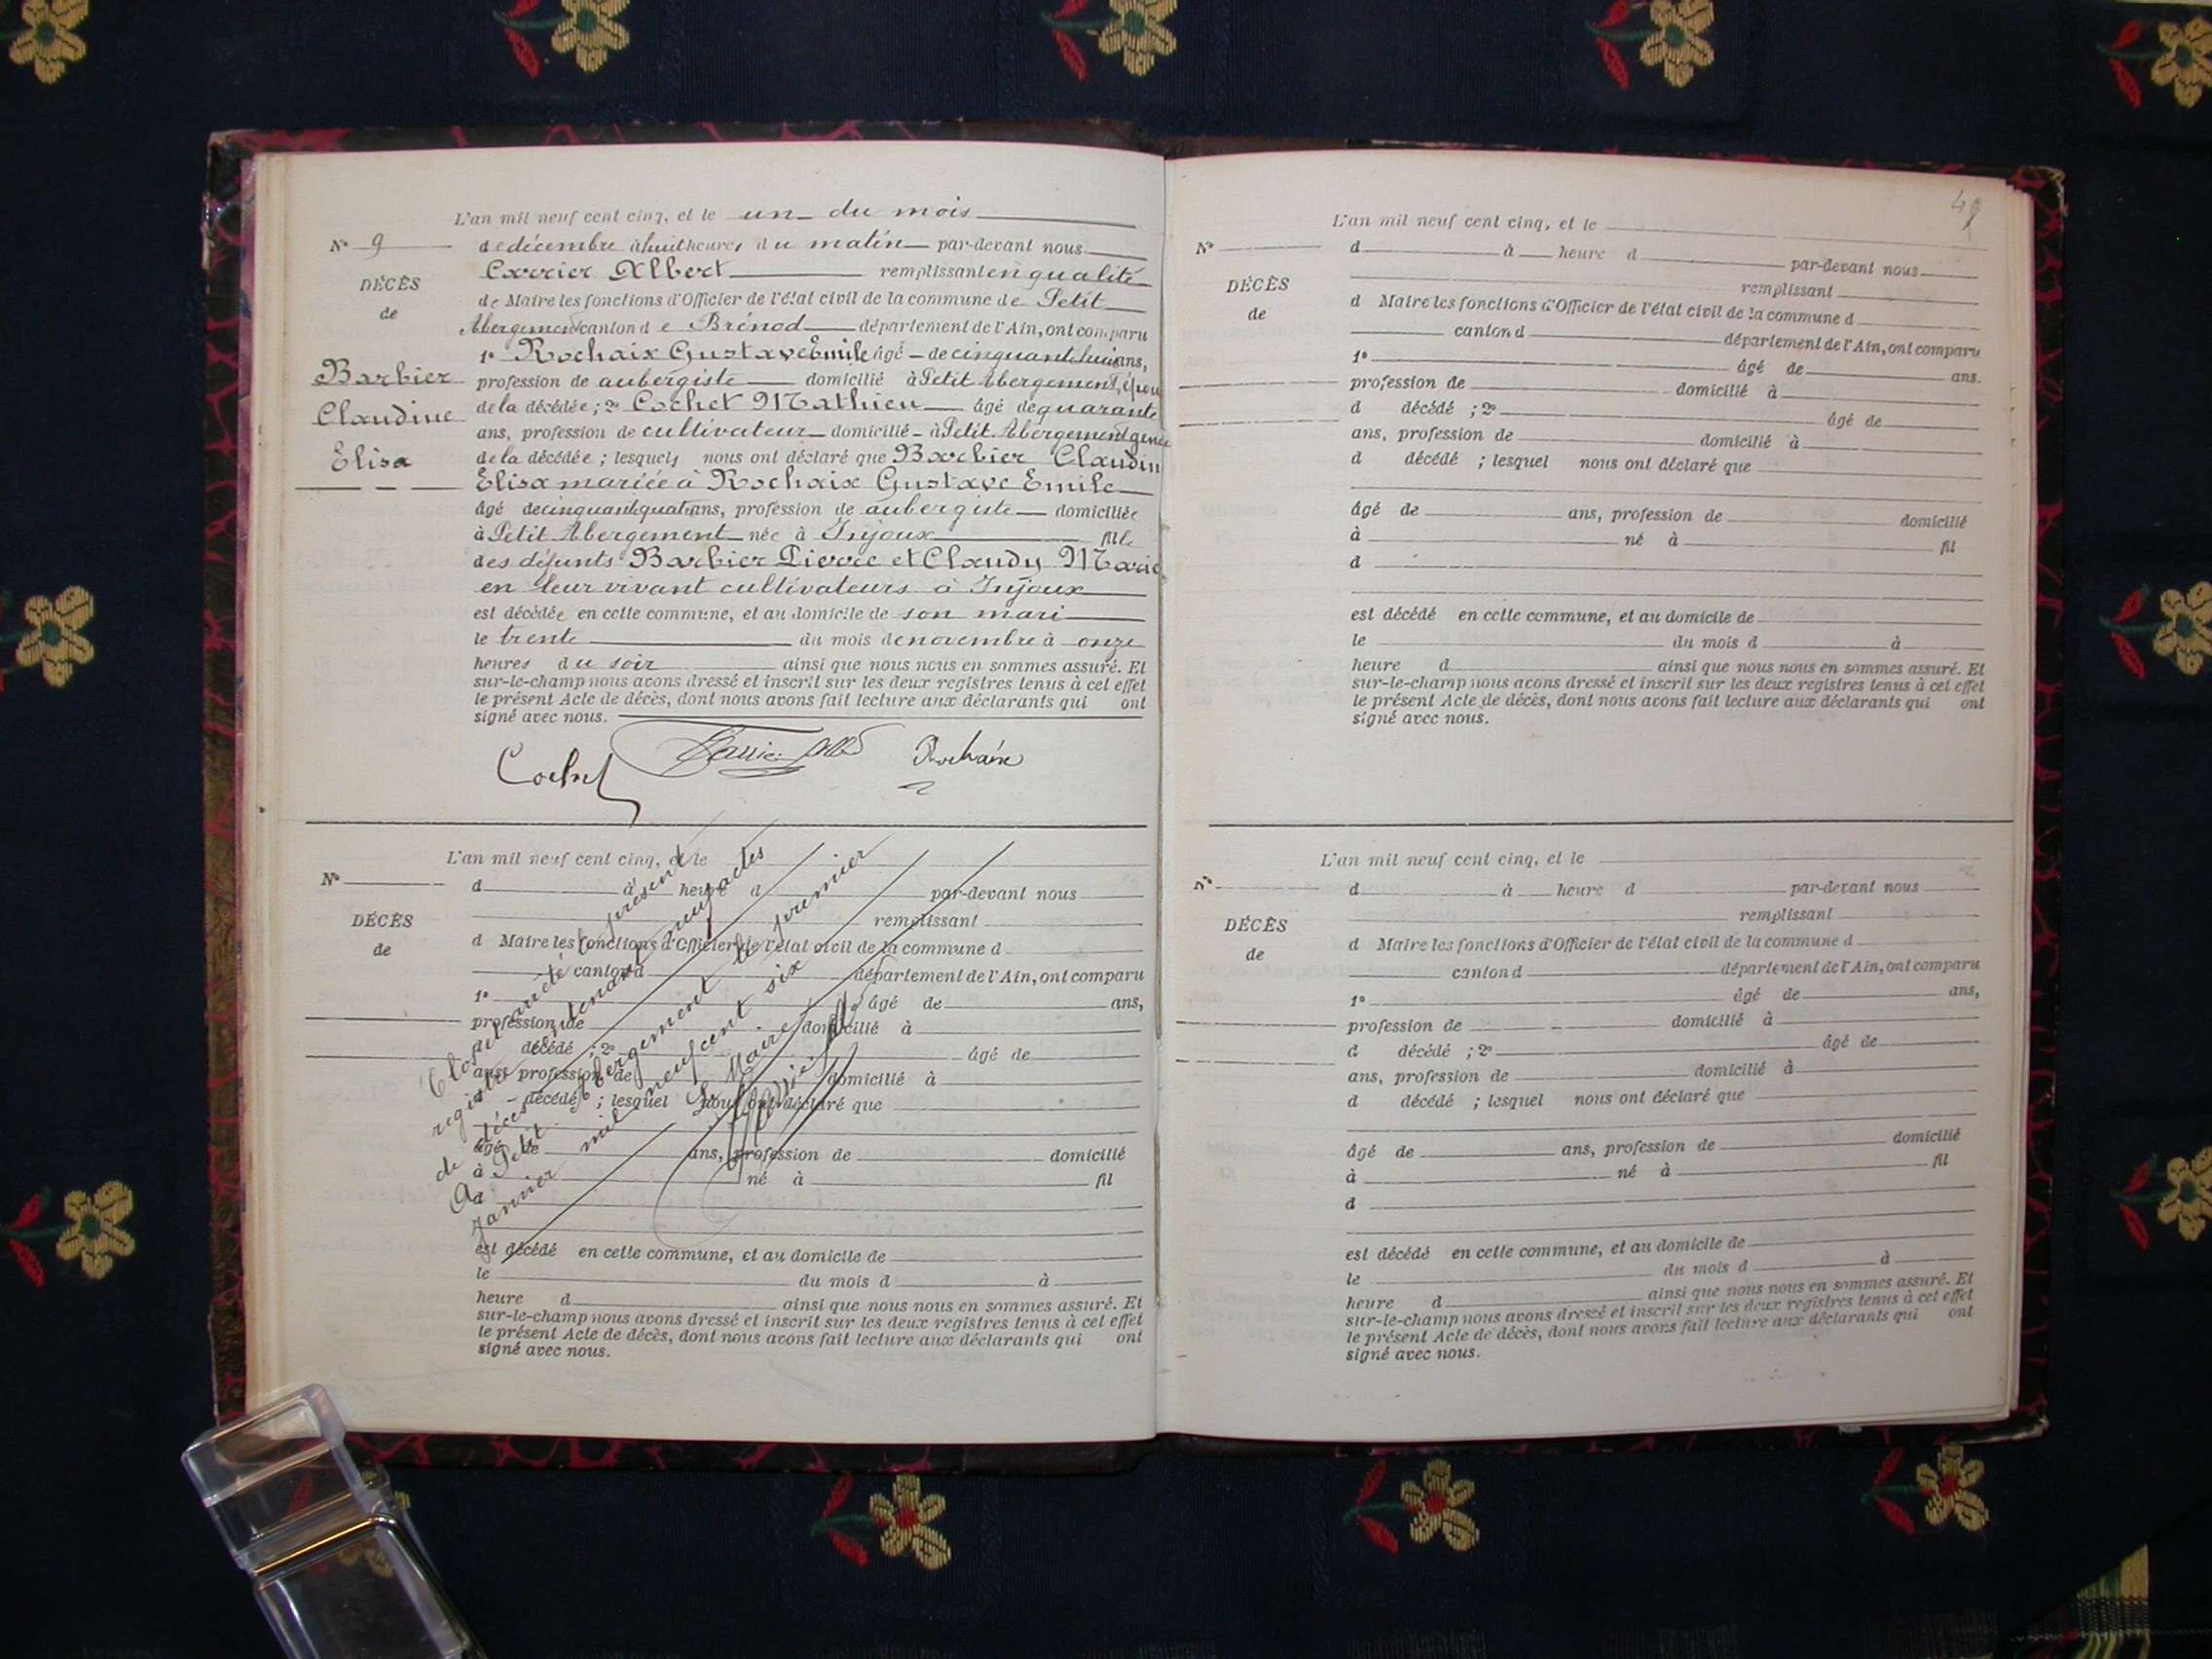 L'an mil neuf cent cinq, et le un du mois
N° 9 de décembre à huit heures du matin par-devant nous
DÉCÈS
de
Barbier
Claudine
Elisa
Carrier Albert remplissant en qualité
de Maire les fonctions d'Officier de l'état civil de la commune de Petit
Abergement canton de Brénod département de l'Ain, ont comparu
1° Rochaix Gustave Emile âgé de cinquante huit ans,
profession de aubergiste domicilié à Petit Abergement, épou
de la décédée ; 2° Cochet Mathieu âgé de quarante
ans, profession de cultivateur domicilié à Petit Abergement gen
de la décédée ; lesquels nous ont déclaré que Barbier Claudin
Elisa mariée à Rochaix Gustave Emile
âgé de cinquante quatre ans, profession de aubergiste domiciliée
à Petit Abergement née à Injoux fille
des défunts Barbier Pierre et Claudy Marie
en leur vivant cultivateurs à Injoux
est décédée en cette commune, et au domicile de son mari
le trente du mois de novembre à onze
heures du soir ainsi que nous nous en sommes assuré. Et
sur-le-champ nous avons dressé et inscrit sur les deux registres tenus à cet effet
le présent Acte de décès, dont nous avons fait lecture aux déclarants qui ont
signé avec nous.
Cochet Rochaix
L'an mil neuf cent cinq, et le
N° d à heure d par-devant nous
DÉCÈS
de
remplissant
d Maire les fonctions d'Officier de l'état civil de la commune d
canton d département de l'Ain, ont comparu
1° âgé de ans,
profession de domicilié à
d décédé ; 2° âgé de
ans, profession de domicilié à
d décédé ; lesquel nous ont déclaré que
âgé de ans, profession de domicilié
à né à fil
d
est décédé en cette commune, et au domicile de
le du mois d à
heure d ainsi que nous nous en sommes assuré. Et
sur-le-champ nous avons dressé et inscrit sur les deux registres tenus à cet effet
le présent Acte de décès, dont nous avons fait lecture aux déclarants qui ont
signé avec nous.
Clos et arrêté le présent
registre contenant neuf actes
de décès
A Petit Abergement le premier
janvier mil neuf cent six
Le Maire
L'an mil neuf cent cinq, et le
N° d à heure d par-devant nous
DÉCÈS
de
remplissant
d Maire les fonctions d'Officier de l'état civil de la commune d
canton d département de l'Ain, ont comparu
1° âgé de ans.
profession de domicilié à
d décédé ; 2° âgé de
ans, profession de domicilié à
d décédé ; lesquel nous ont déclaré que
âgé de ans, profession de domicilié
à né à fil
d
est décédé en cette commune, et au domicile de
le du mois d à
heure d ainsi que nous nous en sommes assuré. Et
sur-le-champ nous avons dressé et inscrit sur les deux registres tenus à cet effet
le présent Acte de décès, dont nous avons fait lecture aux déclarants qui ont
signé avec nous.
L'an mil neuf cent cinq, et le
N° d à heure d par-devant nous
DÉCÈS
de
remplissant
d Maire les fonctions d'Officier de l'état civil de la commune d
canton d département de l'Ain, ont comparu
1° âgé de ans,
profession de domicilié à
d décédé ; 2° âgé de
ans, profession de domicilié à
d décédé ; lesquel nous ont déclaré que
âgé de ans, profession de domicilié
à né à fil
d
est décédé en cette commune, et au domicile de
le du mois d à
heure d ainsi que nous nous en sommes assuré. Et
sur-le-champ nous avons dressé et inscrit sur les deux registres tenus à cet effet
le présent Acte de décès, dont nous avons fait lecture aux déclarants qui ont
signé avec nous.